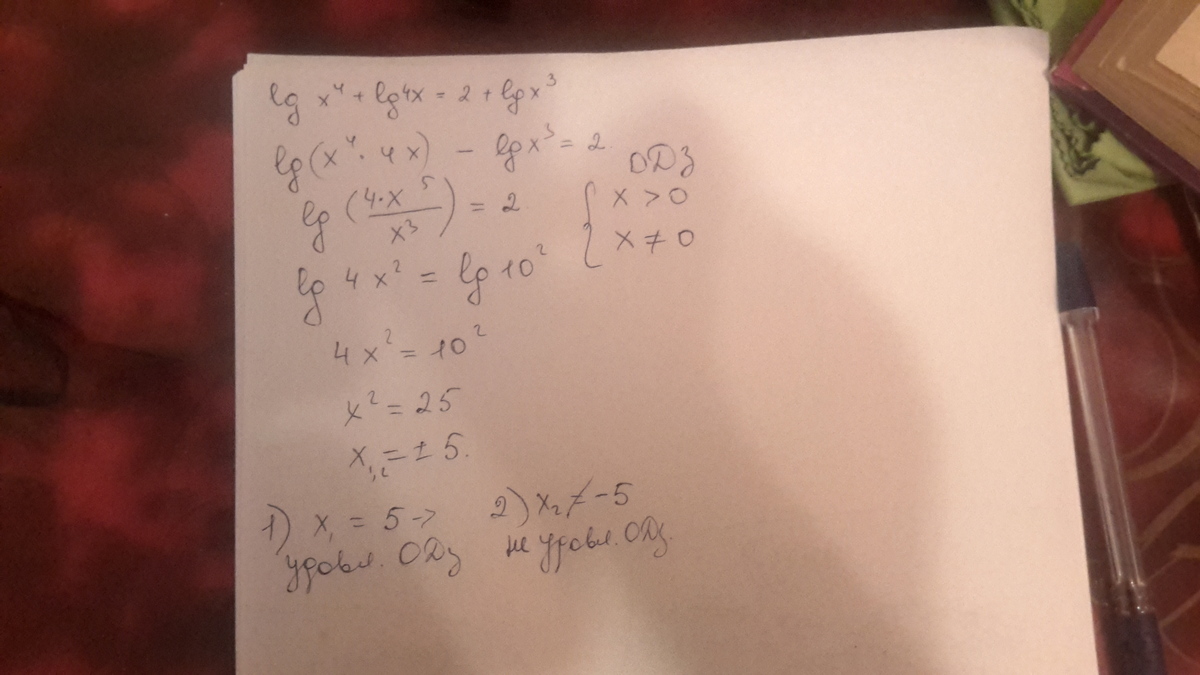 lg x⁴ + lg 4x = 2 + lg x³
lg (x⁴ · 4x) - lg x³ = 2
ОДЗ
lg (4·x⁵ / x³) = 2
{ x > 0
x ≠ 0
lg 4x² = lg 10²
4x² = 10²
x² = 25
x₁,₂ = ± 5.
1) x₁ = 5 →
удовл. ОДЗ
2) x₂ ≠ -5
не удовл. ОДЗ.